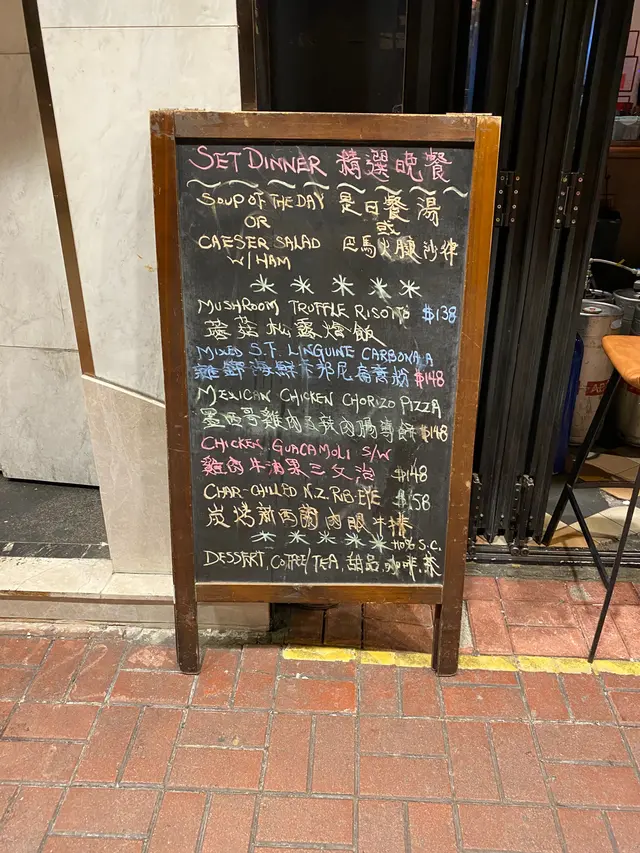 SET DINNER 精選晚餐
SOUP OF THE DAY 是日餐湯
OR 或
CAESER SALAD 巴馬火腿沙律
W/HAM
MUSHROOM TRUFFLE RISOTTO $138
蘑菇松露燴飯
MIXED S.F. LINGUINE CARBONARA
海鮮卡邦尼扁意粉 $148
MEXICAN CHICKEN CHORIZO PIZZA
墨西哥雞肉及辣肉腸薄餅 $148
CHICKEN GUACAMOLI S/W
雞肉牛油果三文治 $148
CHAR-CHILLED N.Z. RIB-EYE $158
炭烤新西蘭肉眼牛扒
+10% S.C.
DESSERT, COFFEE/TEA, 甜品,咖啡,茶